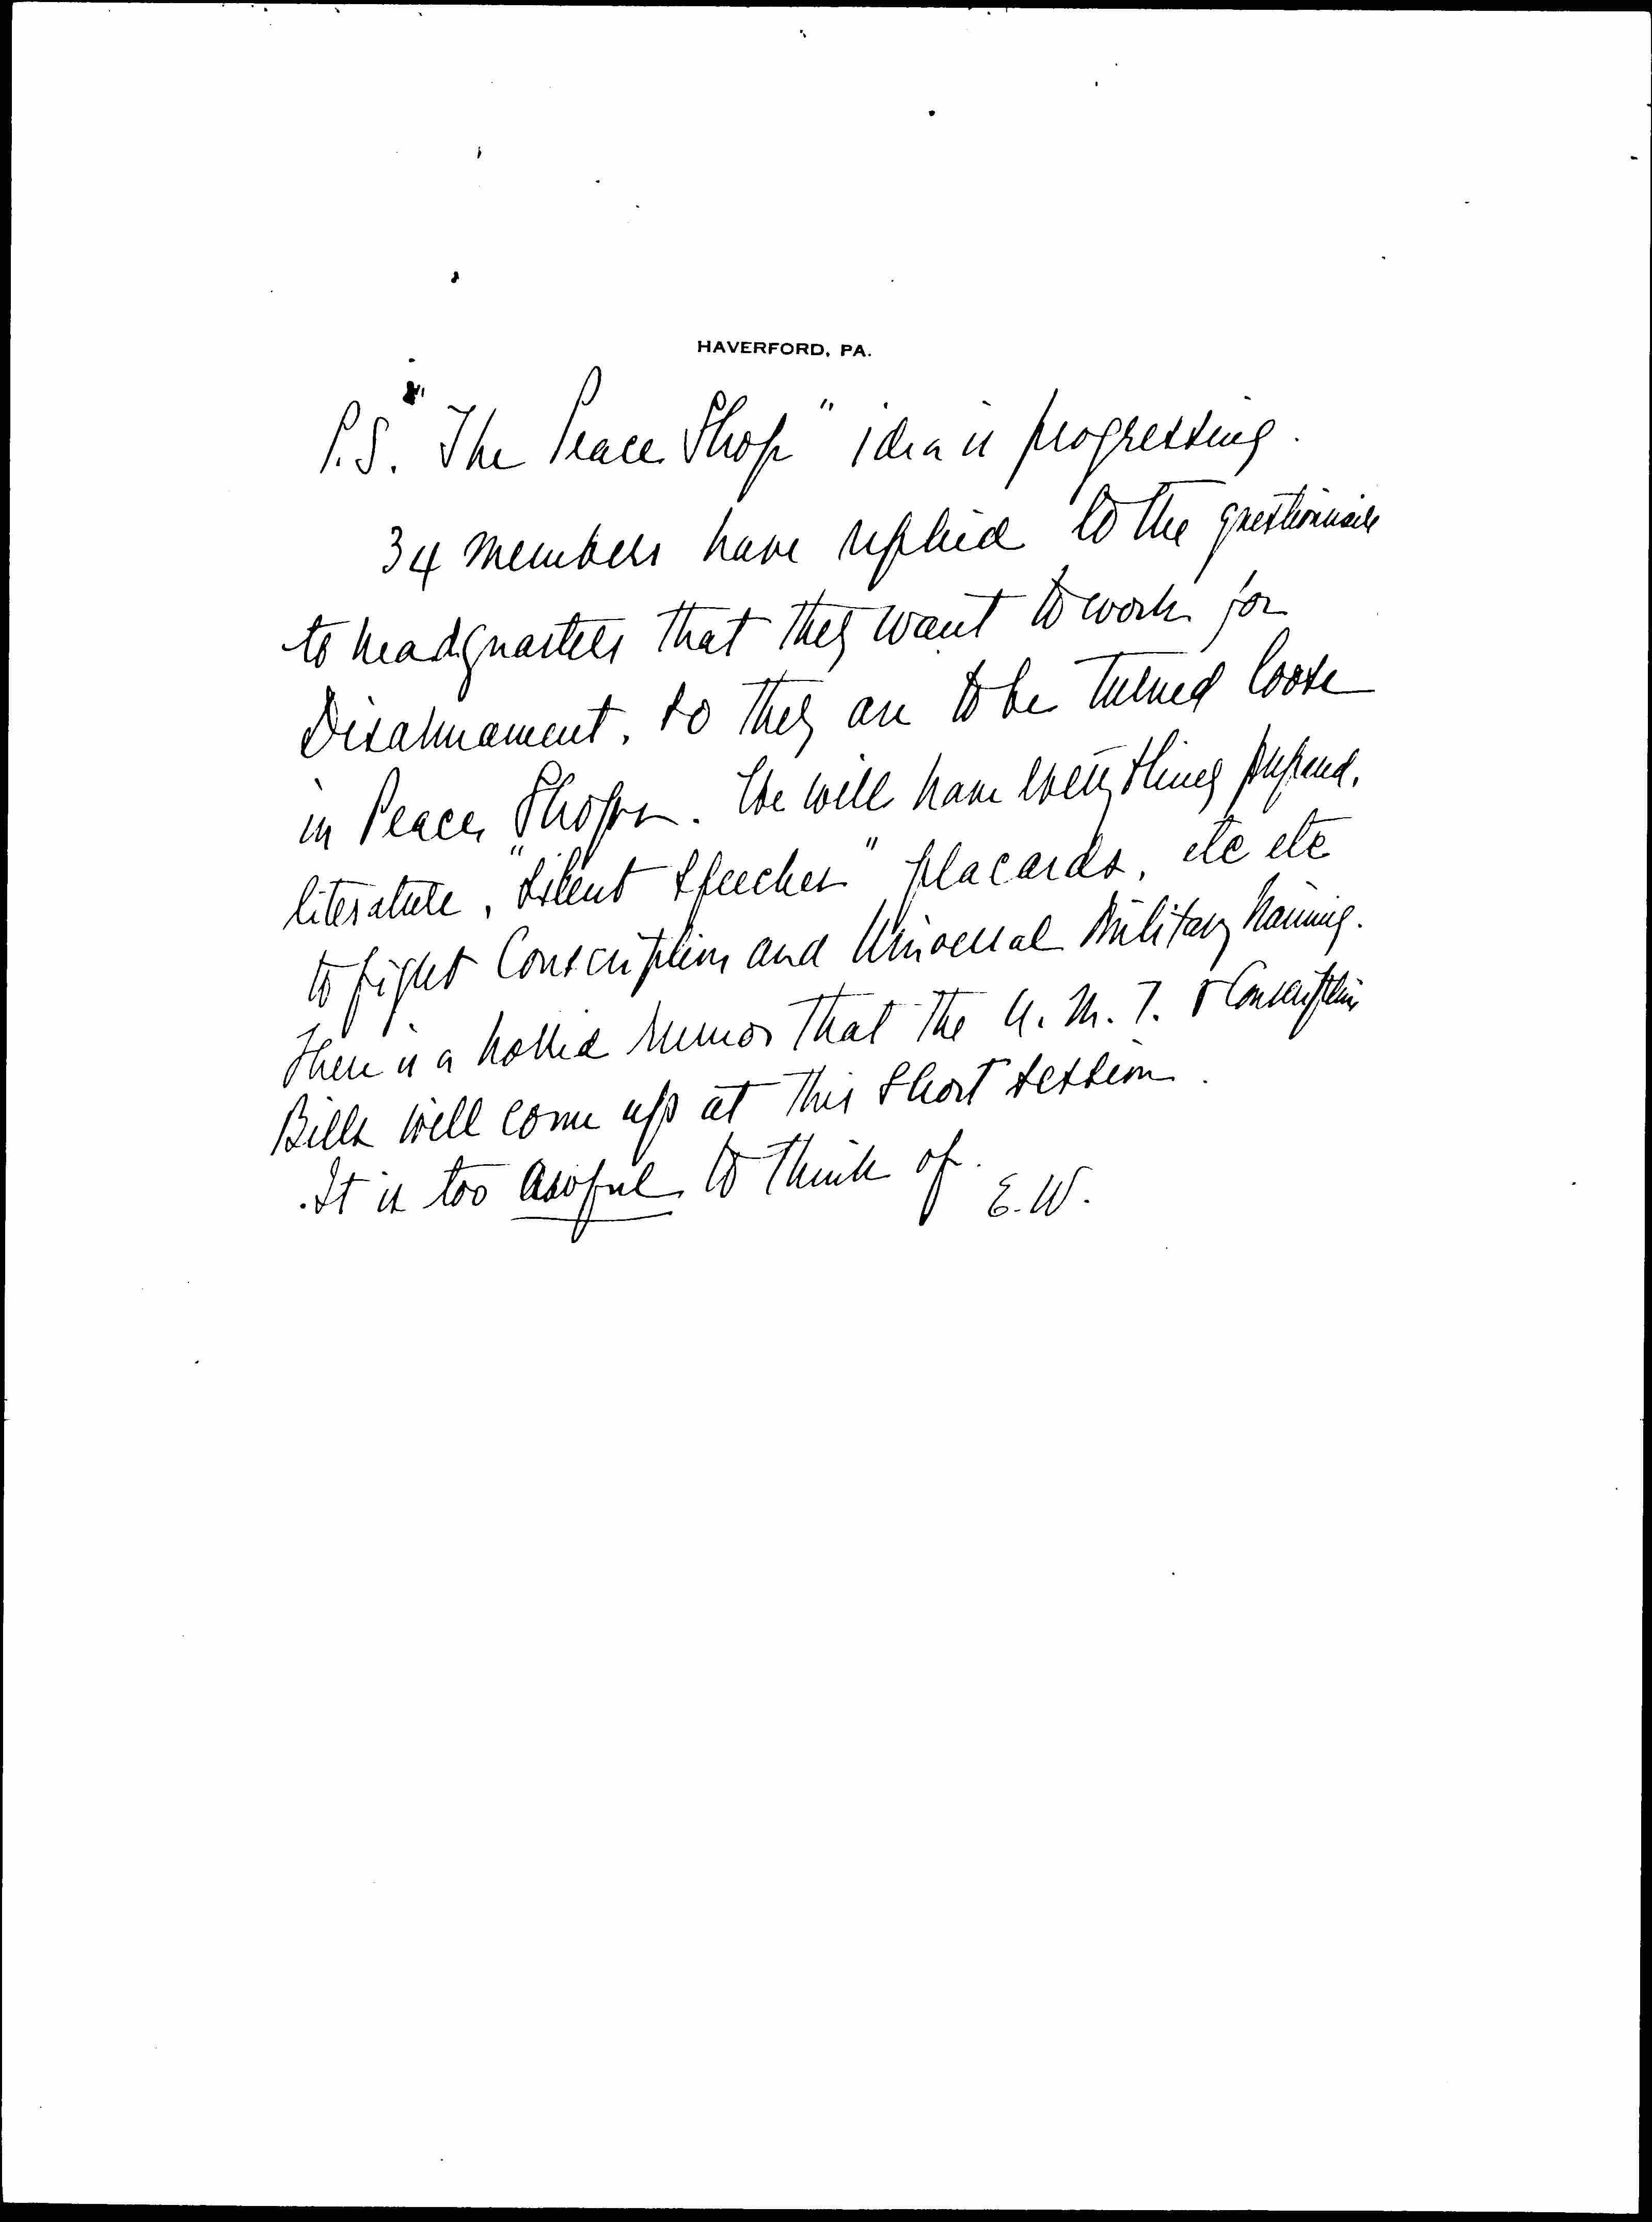 HAVERFORD, PA.
P.S. "The Peace Shop" idea is progressing.
34 members have replied to the questionnaire
to headquarters that they want to work for
Disarmament, so they are to be turned loose
in Peace Shops. We will have everything prepared,
literature, "silent speeches" placards, etc etc
to fight Conscription and Universal Military Training.
There is a horrid rumor that the U. M. T. & Conscription
Bills will come up at this short session.
It is too awful to think of.
E.W.